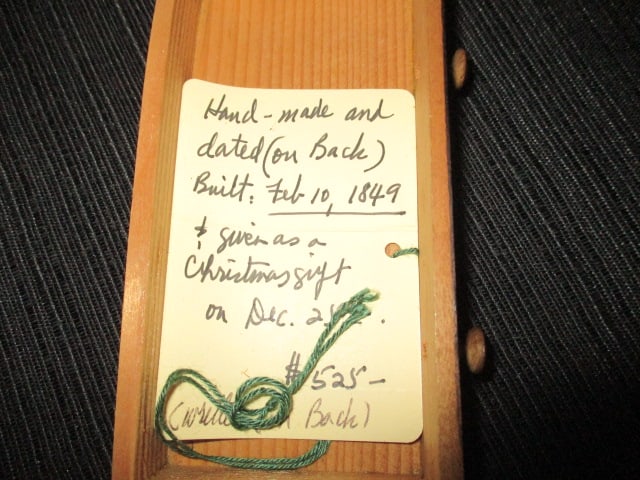 Hand-made and
dated (on Back)
Built: Feb 10, 1849
& given as a
Christmas gift
on Dec.
$525-
Back)